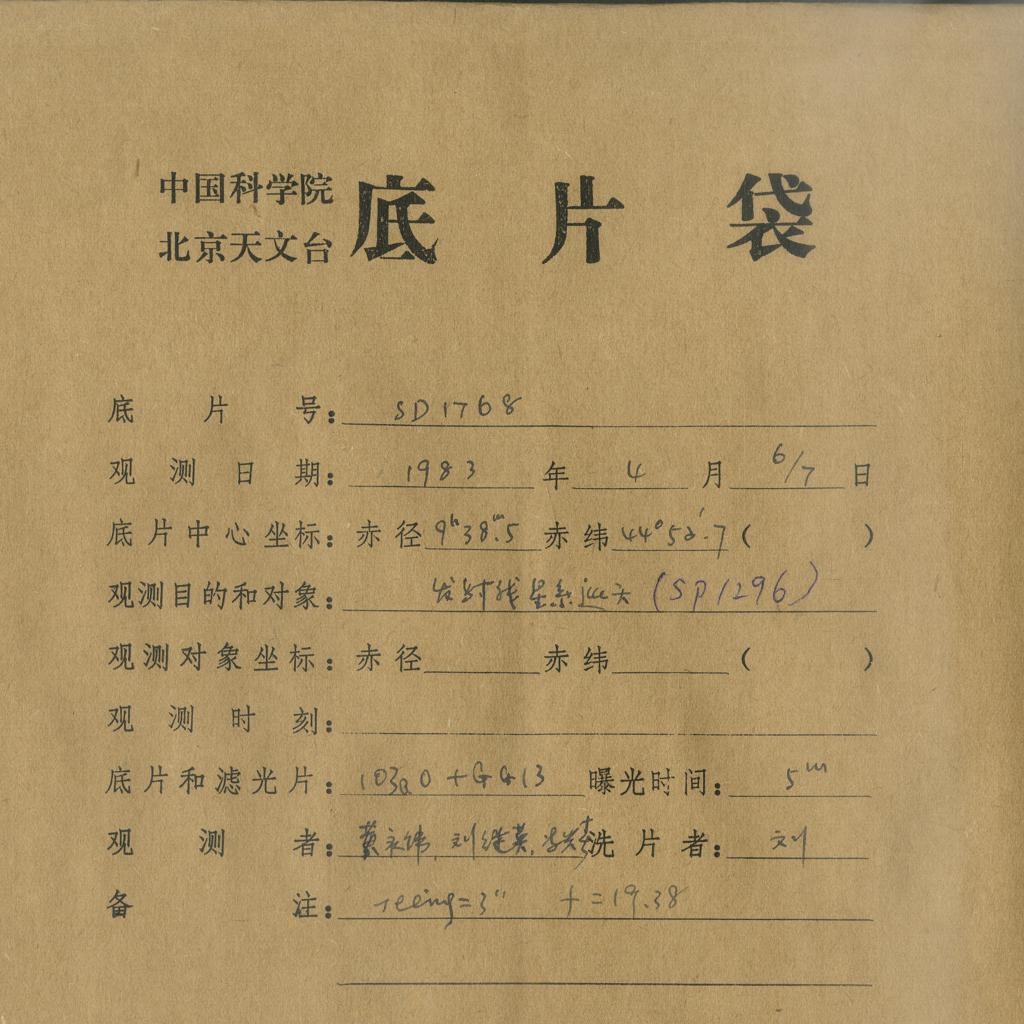 中国科学院
北京天文台
底片袋
底片号: SD1768
观测日期: 1983年4月6/7日
底片中心坐标: 赤径9ʰ38ᵐ.5 赤纬44°52'.7 ( )
观测目的和对象: 发射线星系巡天 (SP1296)
观测对象坐标: 赤径 赤纬 ( )
观测时刻:
底片和滤光片: 103aO+GG13 曝光时间: 5ᵐ
观测者: 刘继英, 洗片者: 刘
备注: seeing=3" f=19.38